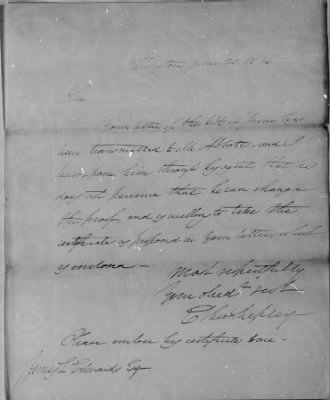 June 20 18
Sir
Your letter of the 6th of June has
been transmitted to Mr Abbott and I
learn from him through his agent that he
does not perceive that he can change
the proof and is willing to take the
certificate as proposed in your letter, which
is enclosed -
Most respectfully
Your obedt servt
Ether Shepley
Please enclose his certificate to me -
James L Edwards Esq